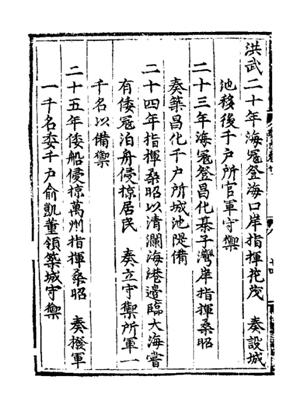 洪武二十年海冦登海口岸指揮花茂　奏設城
池移後千戶所官軍守禦
二十三年海冦登昌化英子灣岸指揮桑昭
奏築昌化千戶所城池隄備
二十四年指揮桑昭以清瀾海港邊臨大海嘗
有倭冦泊舟侵掠居民　奏立守禦所軍一
千名以備禦
二十五年倭船侵掠萬州指揮桑昭　奏撥軍
一千名委千戶俞凱董領築城守禦